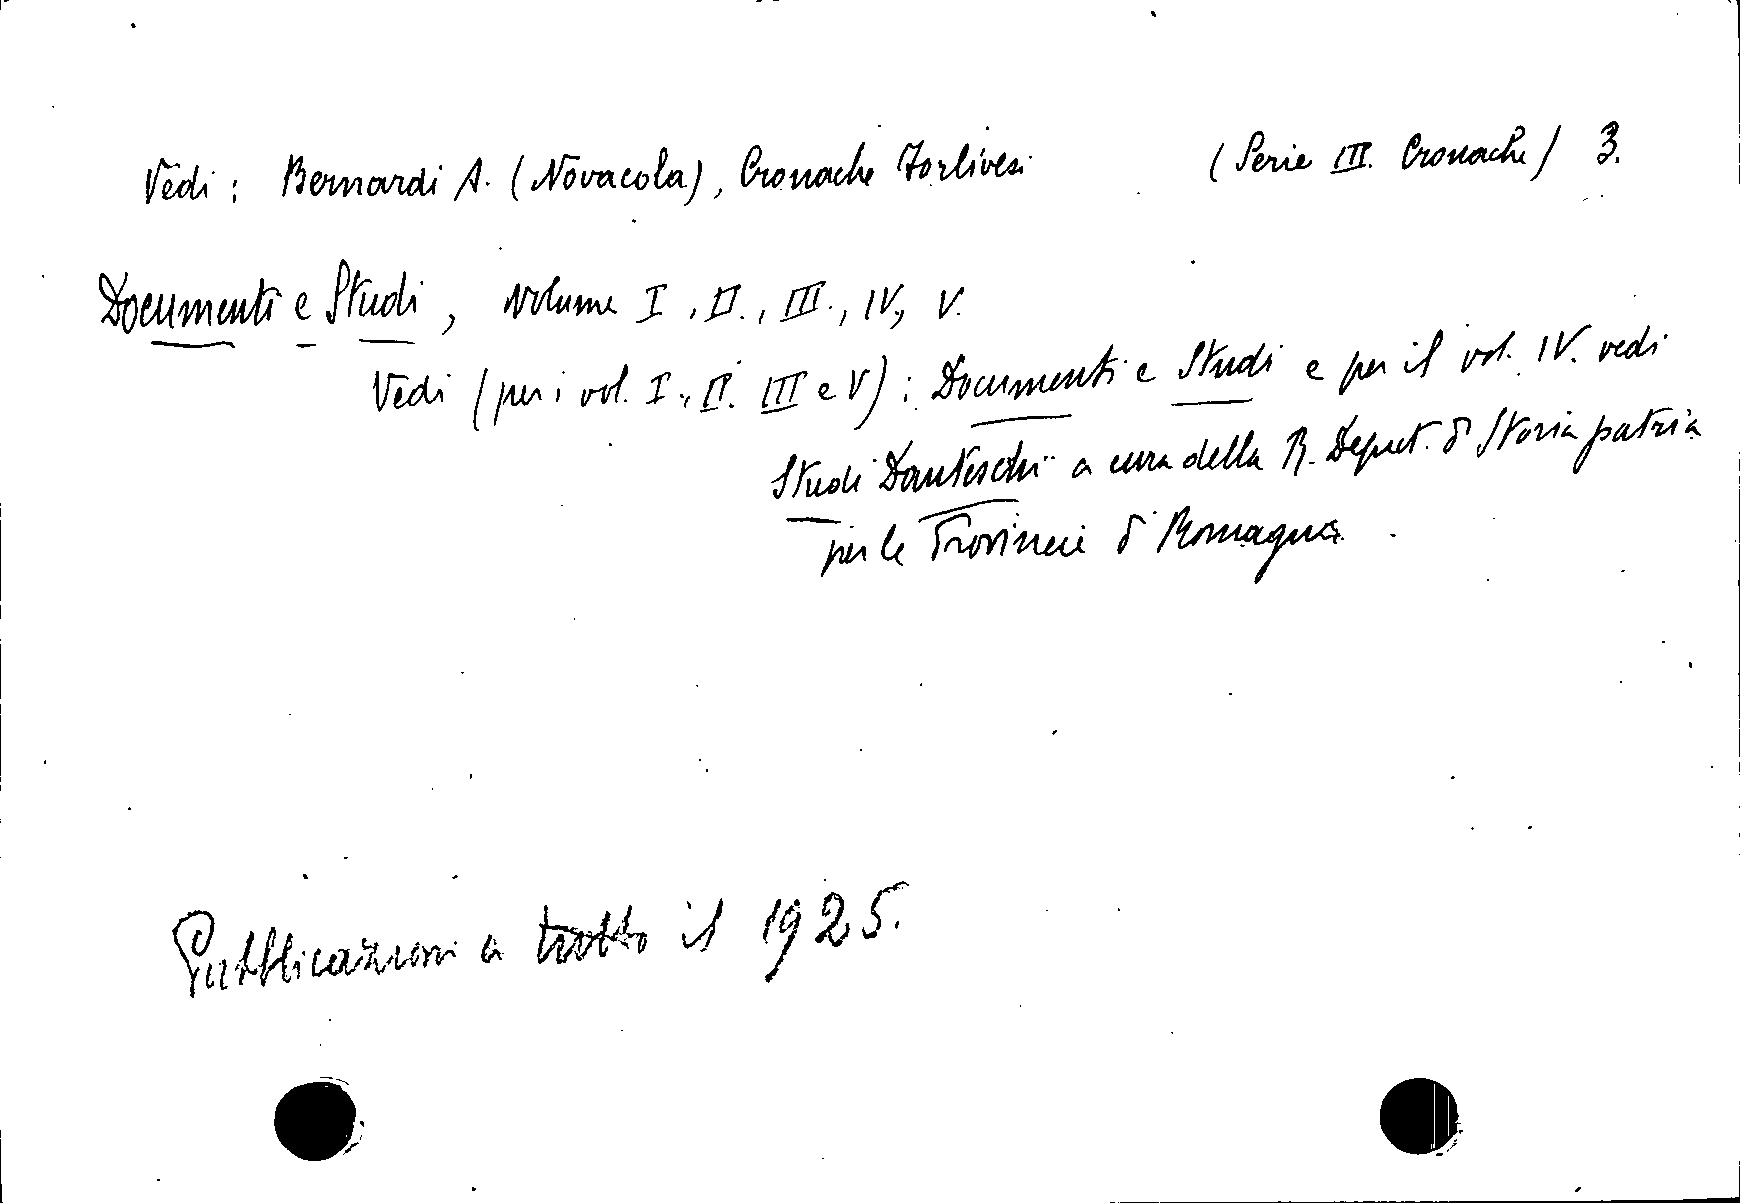 Vedi : Bernardi A. (Novacola), Cronache Forlivesi (Serie III. Cronache) 3.
Documenti e Studi, volume I, II., III., IV, V.
Vedi (per i vol. I., II. III e V) : Documenti e Studi e per il vol. IV. vedi
Studi Danteschi a cura della R. Deput. di Storia patria
per le Provincie di Romagna.
Pubblicazioni a tutto il 1925.